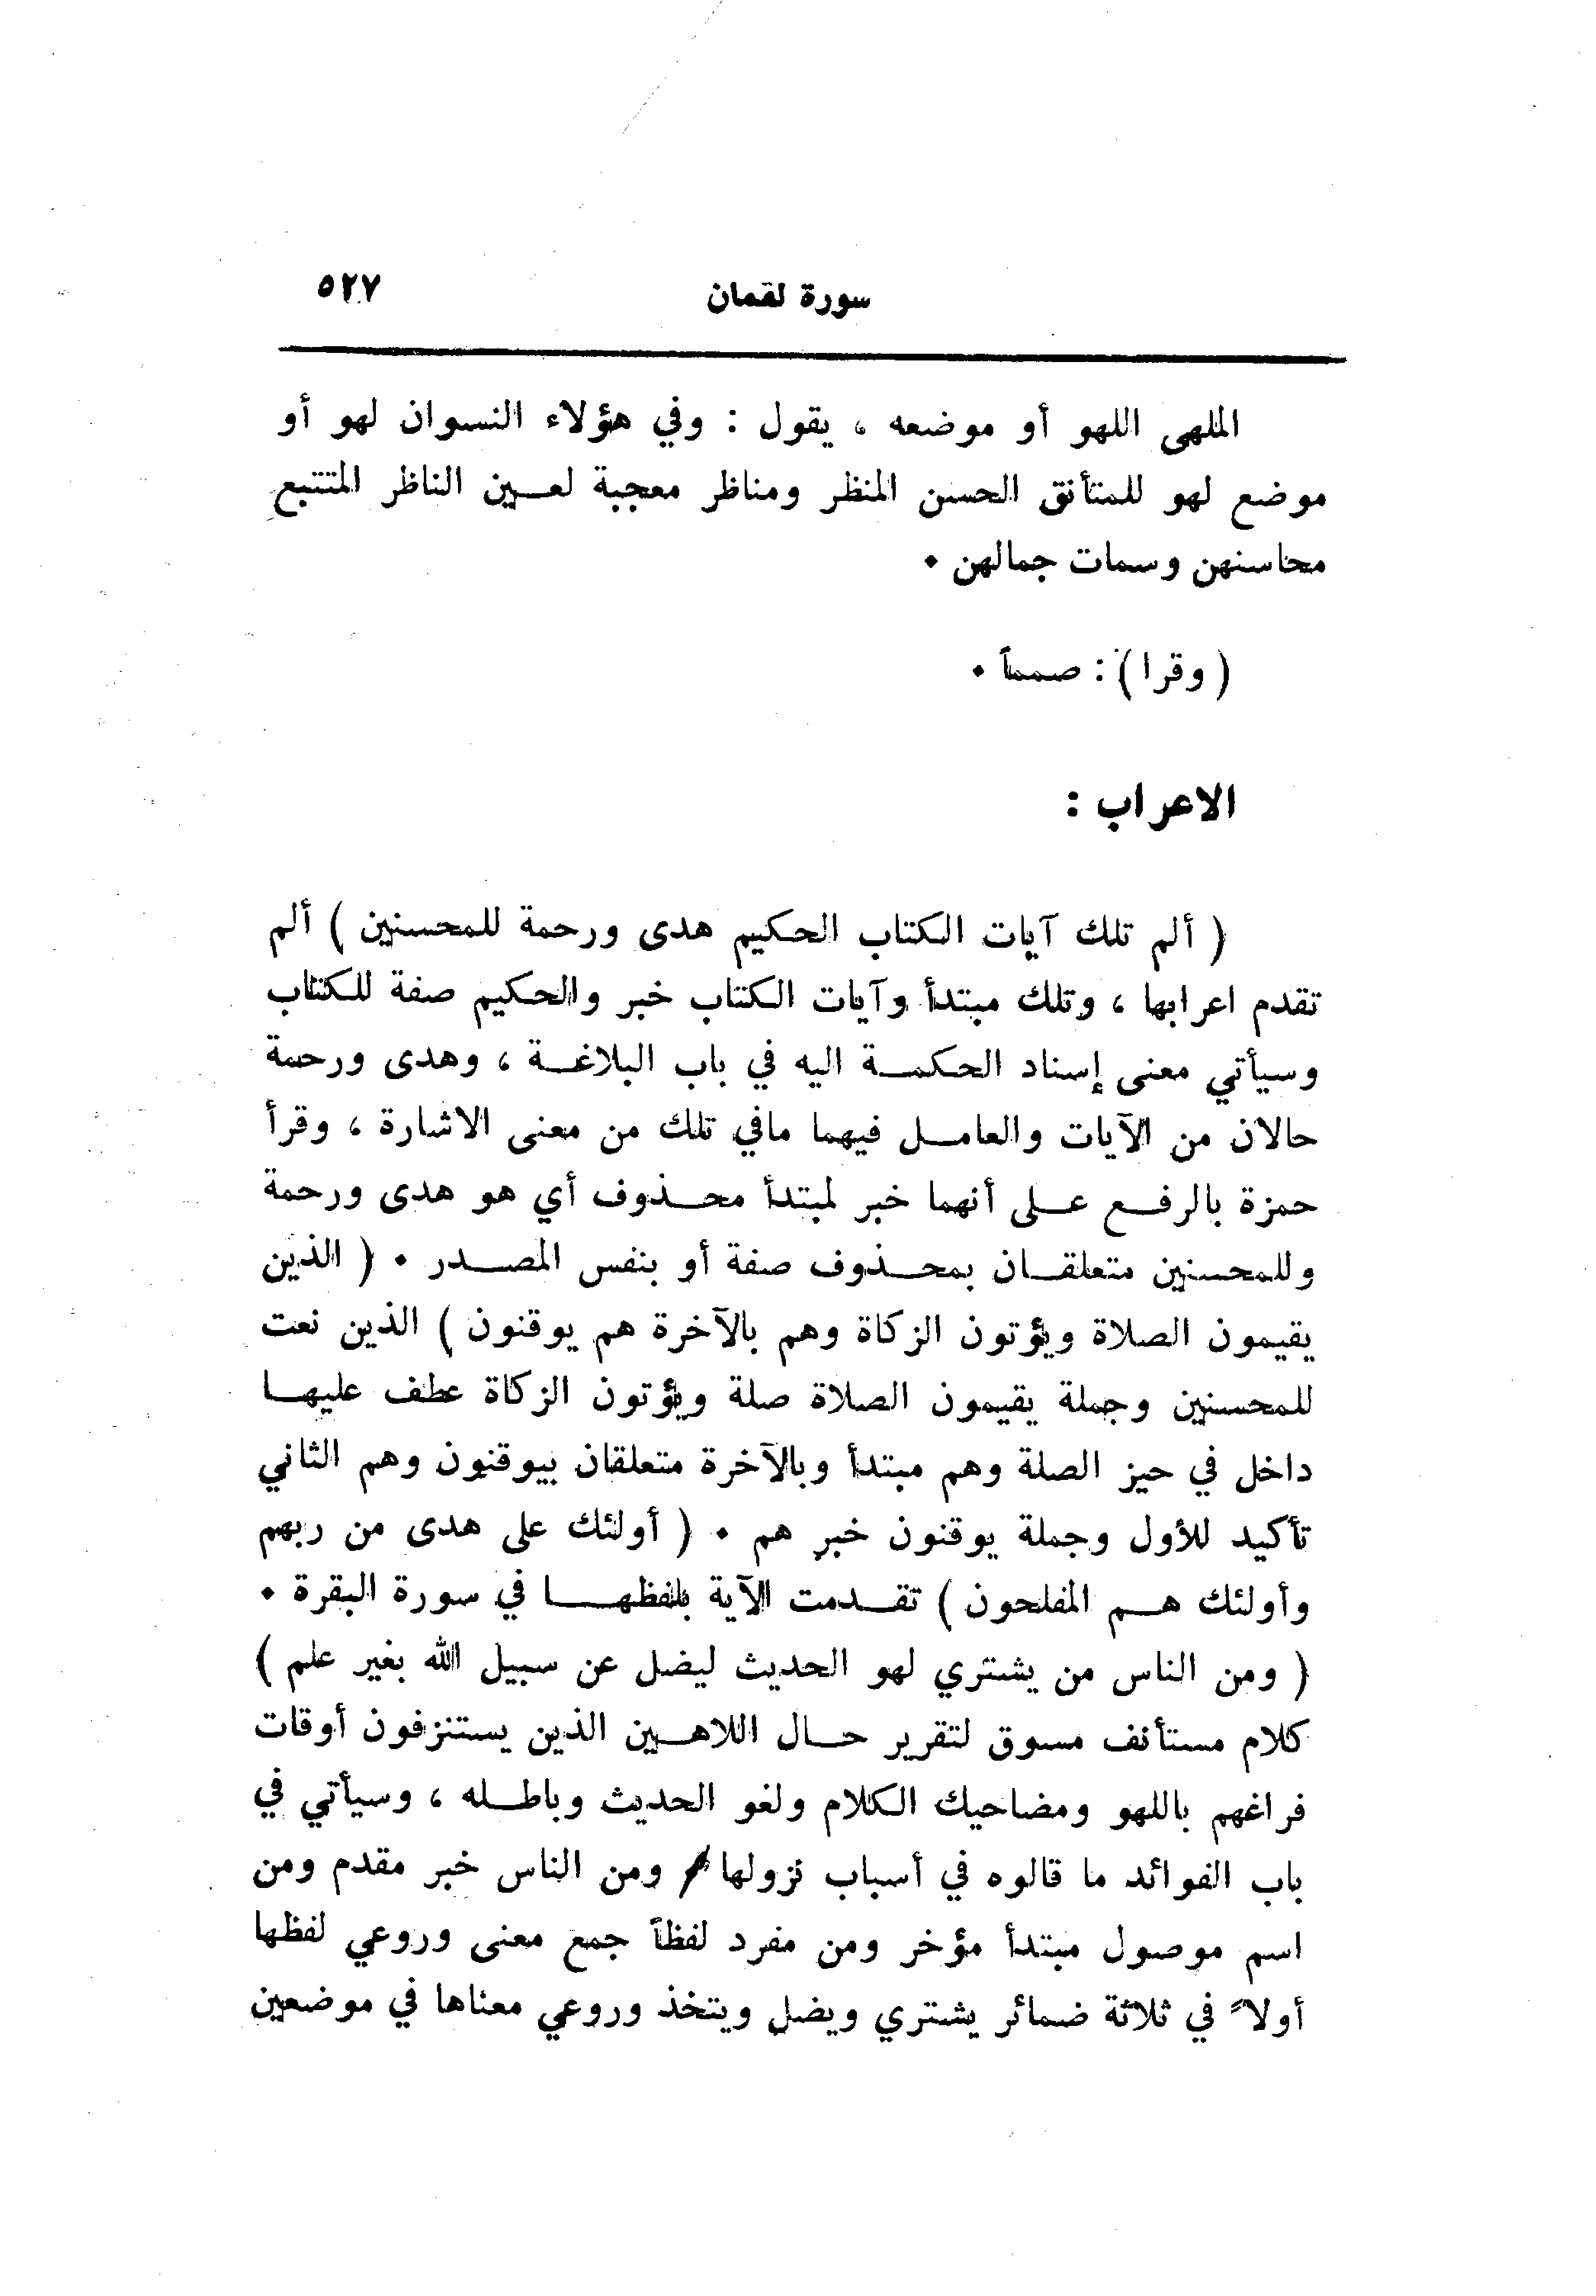 سورة لقمان ٥٢٧
الملهى اللهو أو موضعه ، يقول : وفي هؤلاء النسوان لهو أو
موضع لهو للمتأنق الحسن المنظر ومناظر معجبة لعين الناظر المتتبع
محاسنهن وسمات جمالهن ٠
( وقرا ) : صمماً ٠
الاعراب :
( ألم تلك آيات الكتاب الحكيم هدى ورحمة للمحسنين ) ألم
تقدم اعرابها ، وتلك مبتدأ وآيات الكتاب خبر والحكيم صفة للكتاب
وسيأتي معنى إسناد الحكمة اليه في باب البلاغة ، وهدى ورحمة
حالان من الآيات والعامل فيهما مافي تلك من معنى الاشارة ، وقرأ
حمزة بالرفع على أنهما خبر لمبتدأ محذوف أي هو هدى ورحمة
وللمحسنين متعلقان بمحذوف صفة أو بنفس المصدر ٠ ( الذين
يقيمون الصلاة ويؤتون الزكاة وهم بالآخرة هم يوقنون ) الذين نعت
للمحسنين وجملة يقيمون الصلاة صلة ويؤتون الزكاة عطف عليها
داخل في حيز الصلة وهم مبتدأ وبالآخرة متعلقان بيوقنون وهم الثاني
تأكيد للأول وجملة يوقنون خبر هم ٠ ( أولئك على هدى من ربهم
وأولئك هم المفلحون ) تقدمت الآية بلفظها في سورة البقرة ٠
( ومن الناس من يشتري لهو الحديث ليضل عن سبيل الله بغير علم )
كلام مستأنف مسوق لتقرير حال اللاهين الذين يستنزفون أوقات
فراغهم باللهو ومضاحيك الكلام ولغو الحديث وباطله ، وسيأتي في
باب الفوائد ما قالوه في أسباب نزولها ومن الناس خبر مقدم ومن
اسم موصول مبتدأ مؤخر ومن مفرد لفظاً جمع معنى وروعي لفظها
أولاً في ثلاثة ضمائر يشتري ويضل ويتخذ وروعي معناها في موضعين